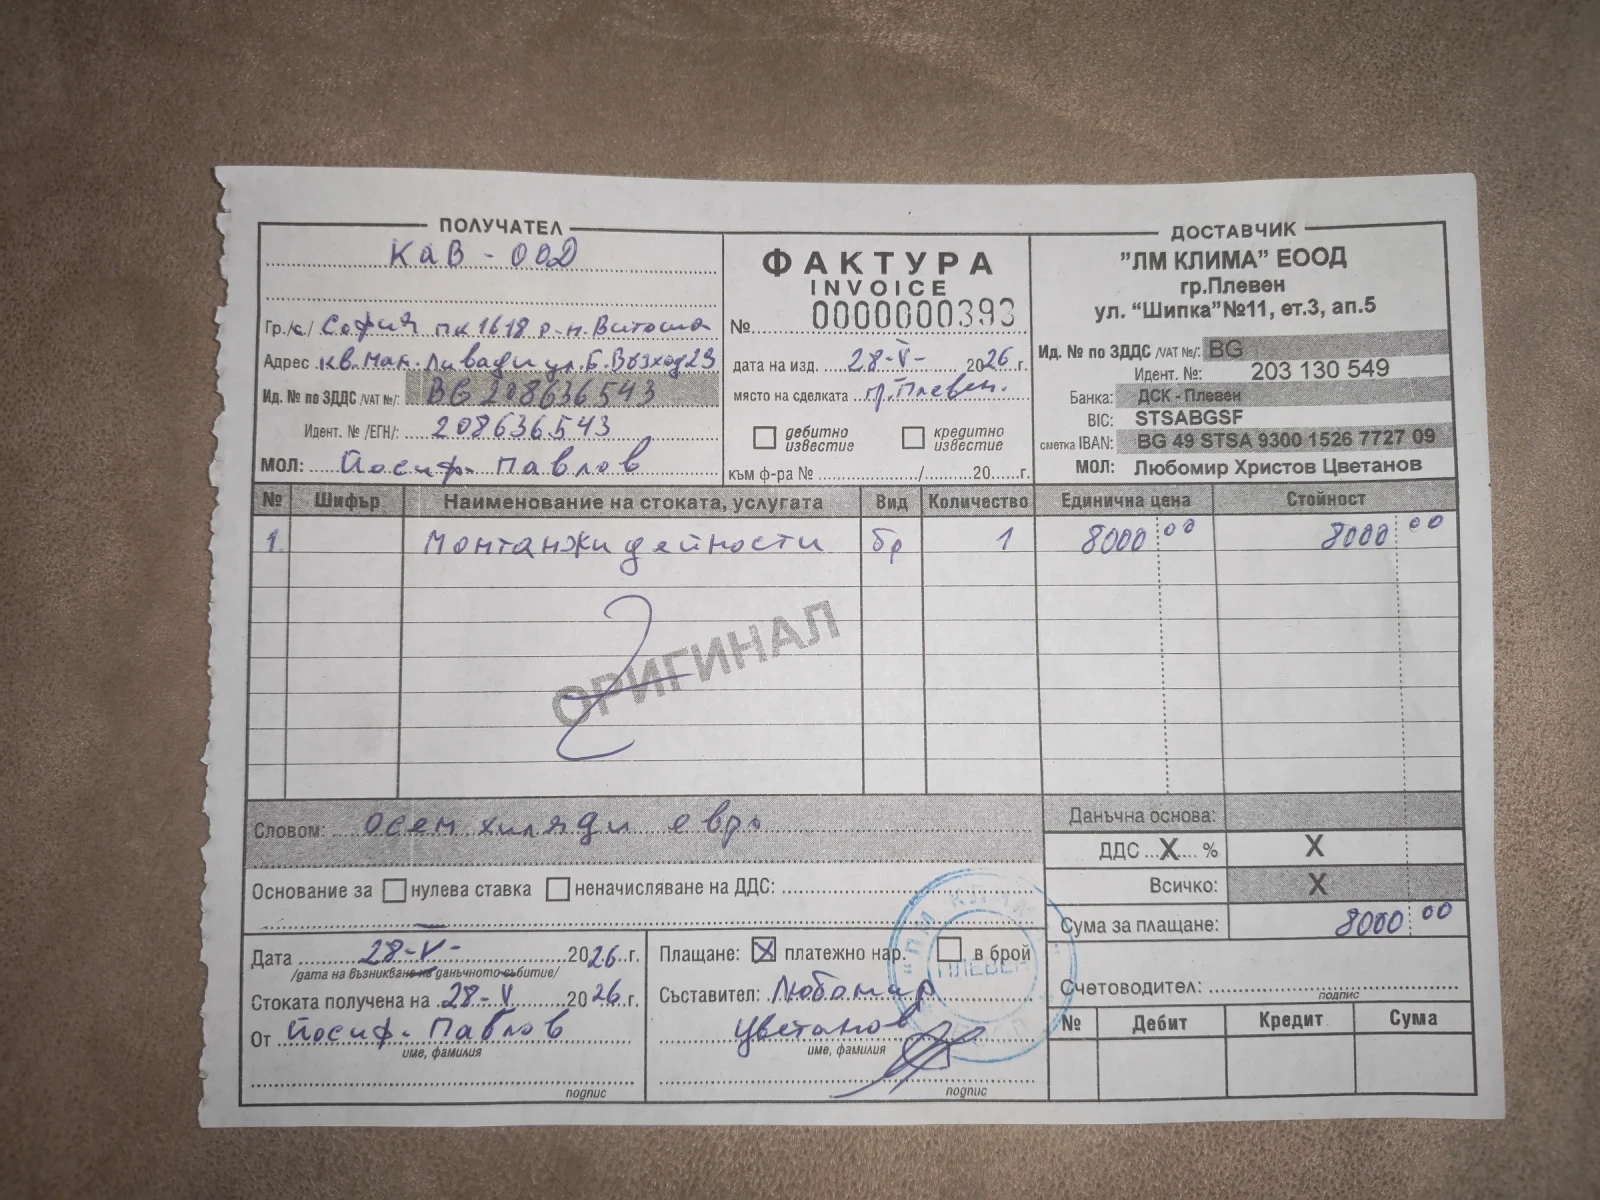 ПОЛУЧАТЕЛ
КаВ - ООД
Гр./с./ София пк 1618 р-н. Витоша
Адрес кв. Ман. Ливади ул. Б. Възход 23
Ид. № по ЗДДС /VAT №/: BG 208636543
Идент. № /ЕГН/: 208636543
МОЛ: Йосиф Павлов
ФАКТУРА
INVOICE
№ 0000000393
дата на изд. 28-V- 2026 г.
място на сделката гр. Плевен.
дебитно известие
кредитно известие
към ф-ра № / 20 г.
ДОСТАВЧИК
"ЛМ КЛИМА" ЕООД
гр.Плевен
ул. "Шипка"№11, ет.3, ап.5
Ид. № по ЗДДС /VAT №/: BG
Идент. №: 203 130 549
Банка: ДСК - Плевен
BIC: STSABGSF
сметка IBAN: BG 49 STSA 9300 1526 7727 09
МОЛ: Любомир Христов Цветанов
№ Шифър Наименование на стоката, услугата Вид Количество Единична цена Стойност
1. Монтажни дейности бр 1 8000 00 8000 00
ОРИГИНАЛ
Словом: Осем хиляди евро
Данъчна основа:
ДДС X % X
Всичко: X
Сума за плащане: 8000 00
Основание за нулева ставка неначисляване на ДДС:
Дата 28-V- 2026 г.
/дата на възникване на данъчното събитие/
Стоката получена на 28-V 2026 г.
От Йосиф Павлов
име, фамилия
подпис
Плащане: X платежно нар. в брой
Съставител: Любомир
Цветанов
име, фамилия
подпис
"ЛМ КЛИМА"
ПЛЕВЕН
ЕООД
Счетоводител:
подпис
№ Дебит Кредит Сума